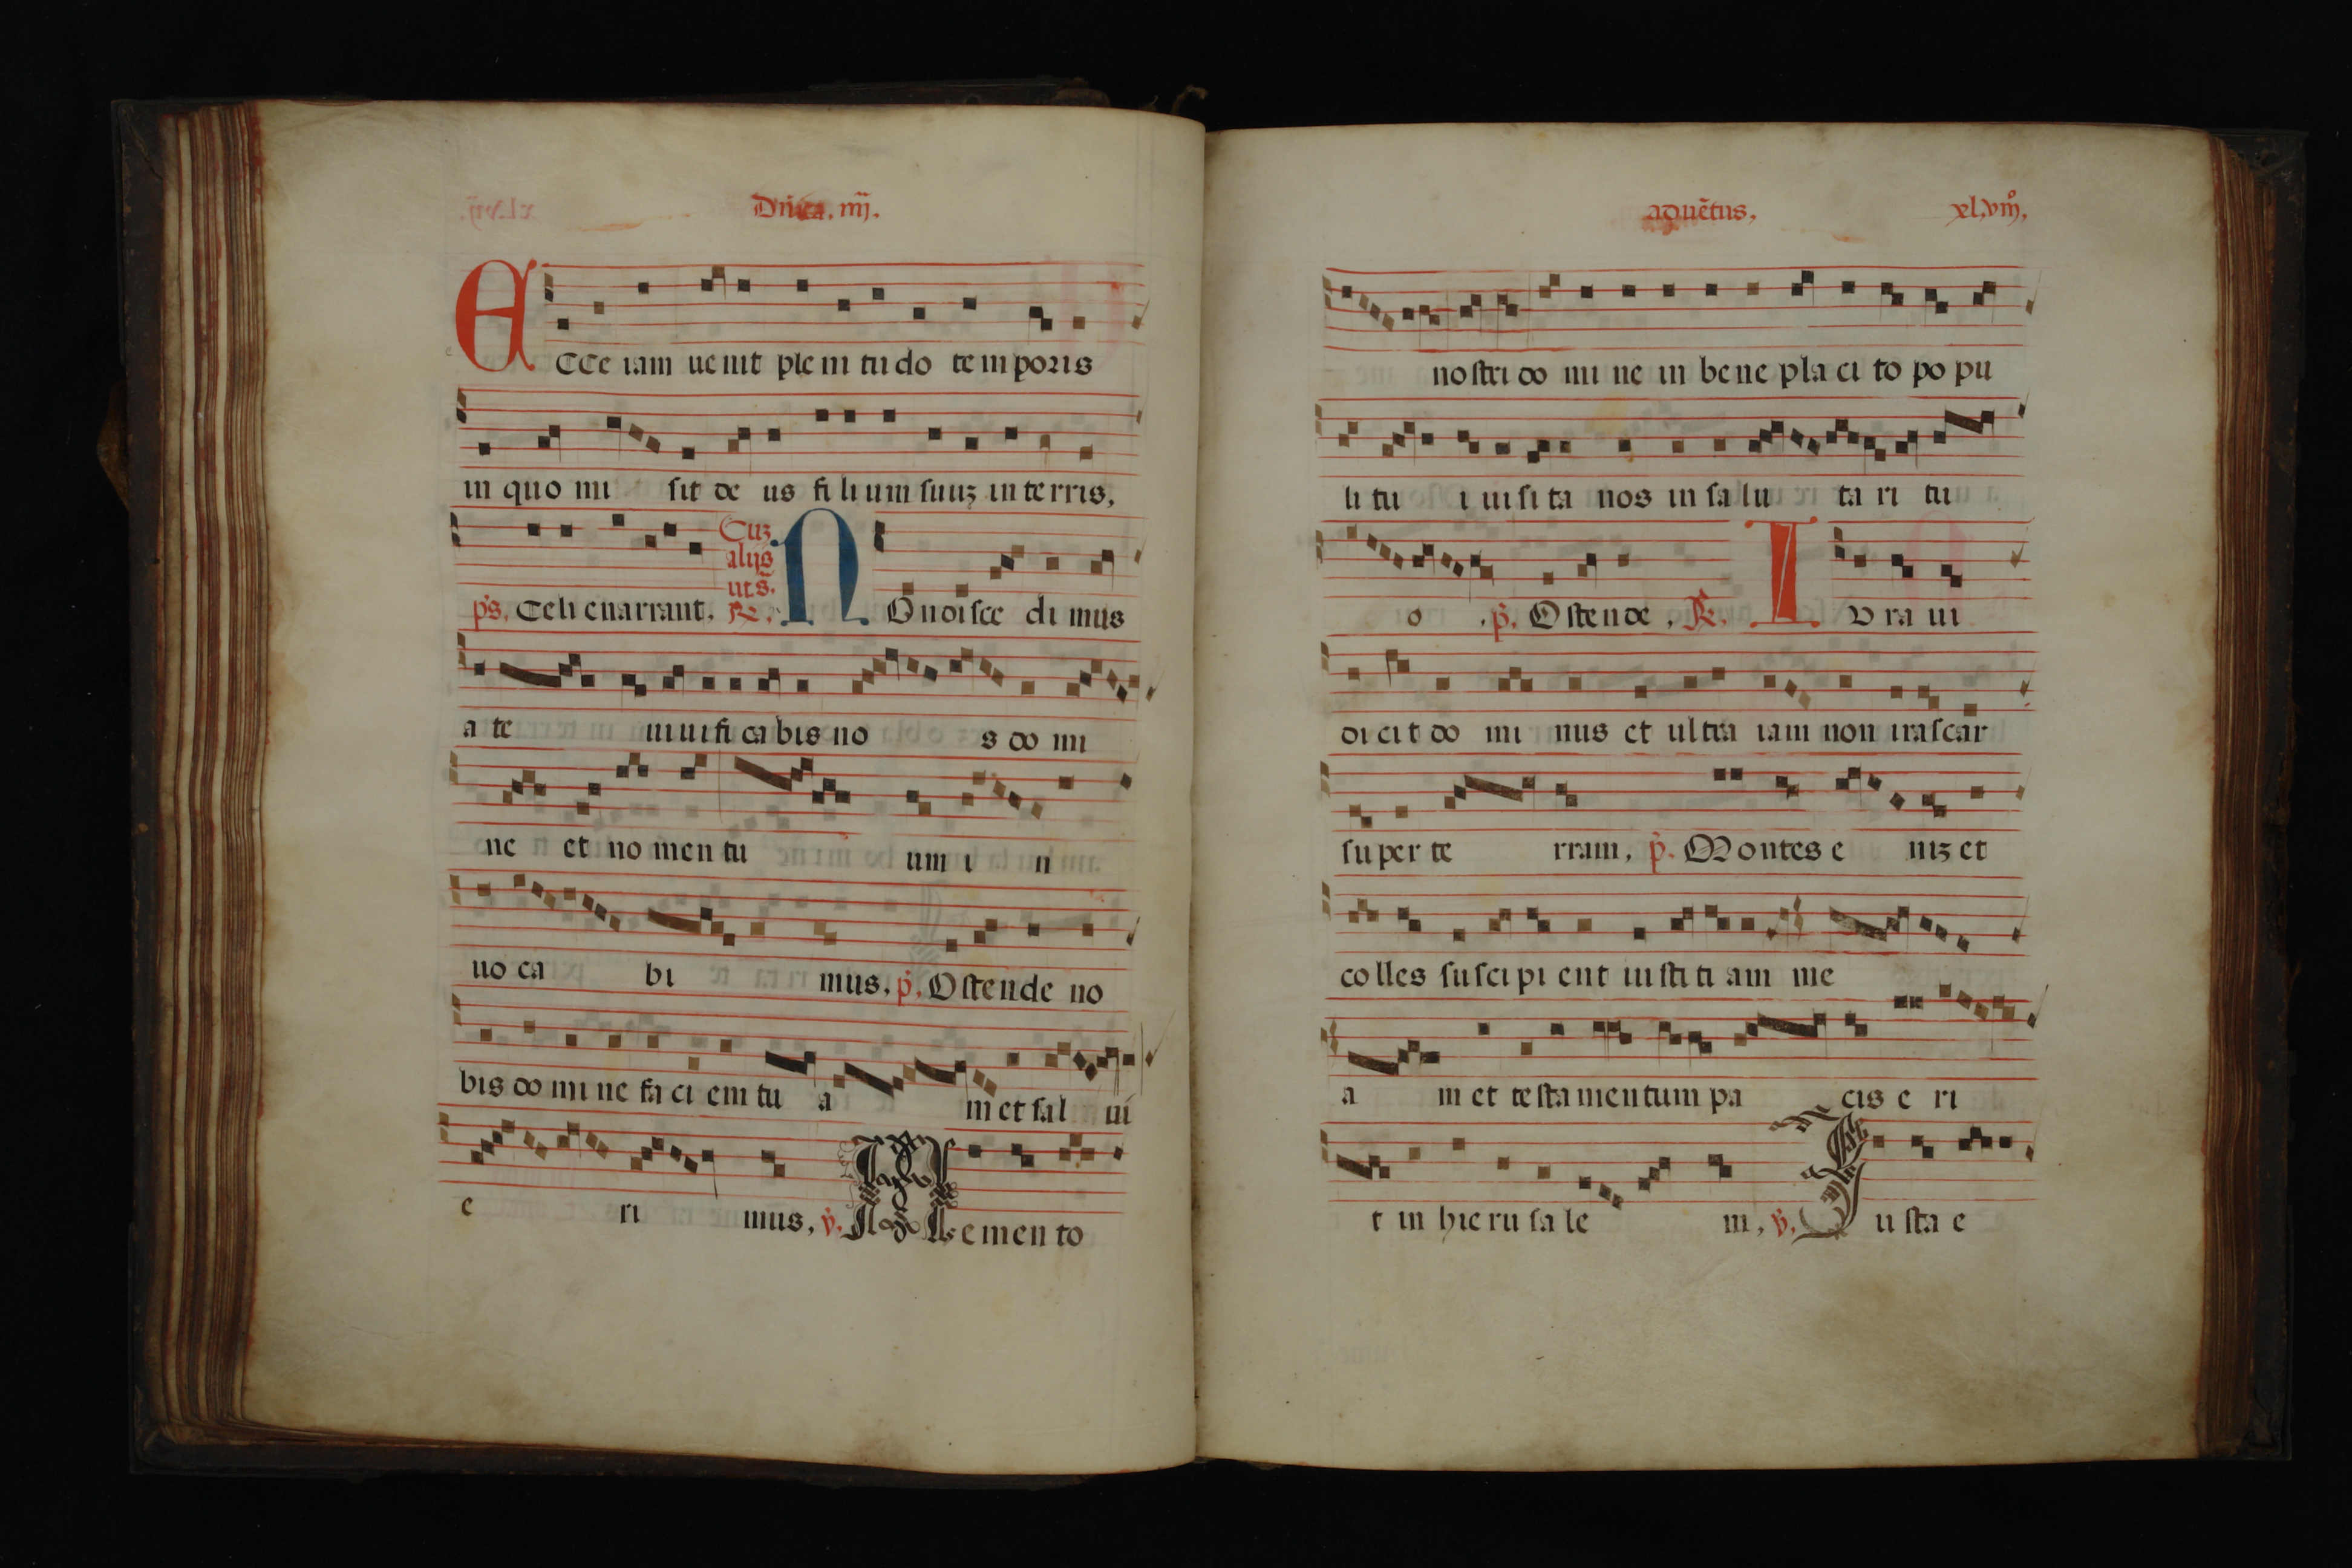 Dñica. iiij.
Ecce iam ue nit ple ni tu do te m poris
in quo mi sit de us fi li um suuʒ in te rris,
p̄s. Celi enarrant. Cuʒ alijs ut s̄. R̃. N O noi sce di mus
a te ui ui fi ca bis no s do mi
ne et no men tu um i n
uo ca bi mus, p̄. O sten de no
bis do mi ne fa ci em tu a m et sal ui
e ri mus, v̄. M e men to
aduẽtus, xl.viijº,
no stri do mi ne in be ne pla ci to po pu
li tu i ui si ta nos in sa lu ta ri tu
o . p̄. O sten de , R̃. I V ra ui
di ci t do mi nus et ul tra iam non irascar
su per te rram, p̄. Montes e niʒ et
co lles su sci pi ent iu sti ti am me
a m et te sta men tum pa cis e ri
t in hie ru sa le m, v̄. I u sta e